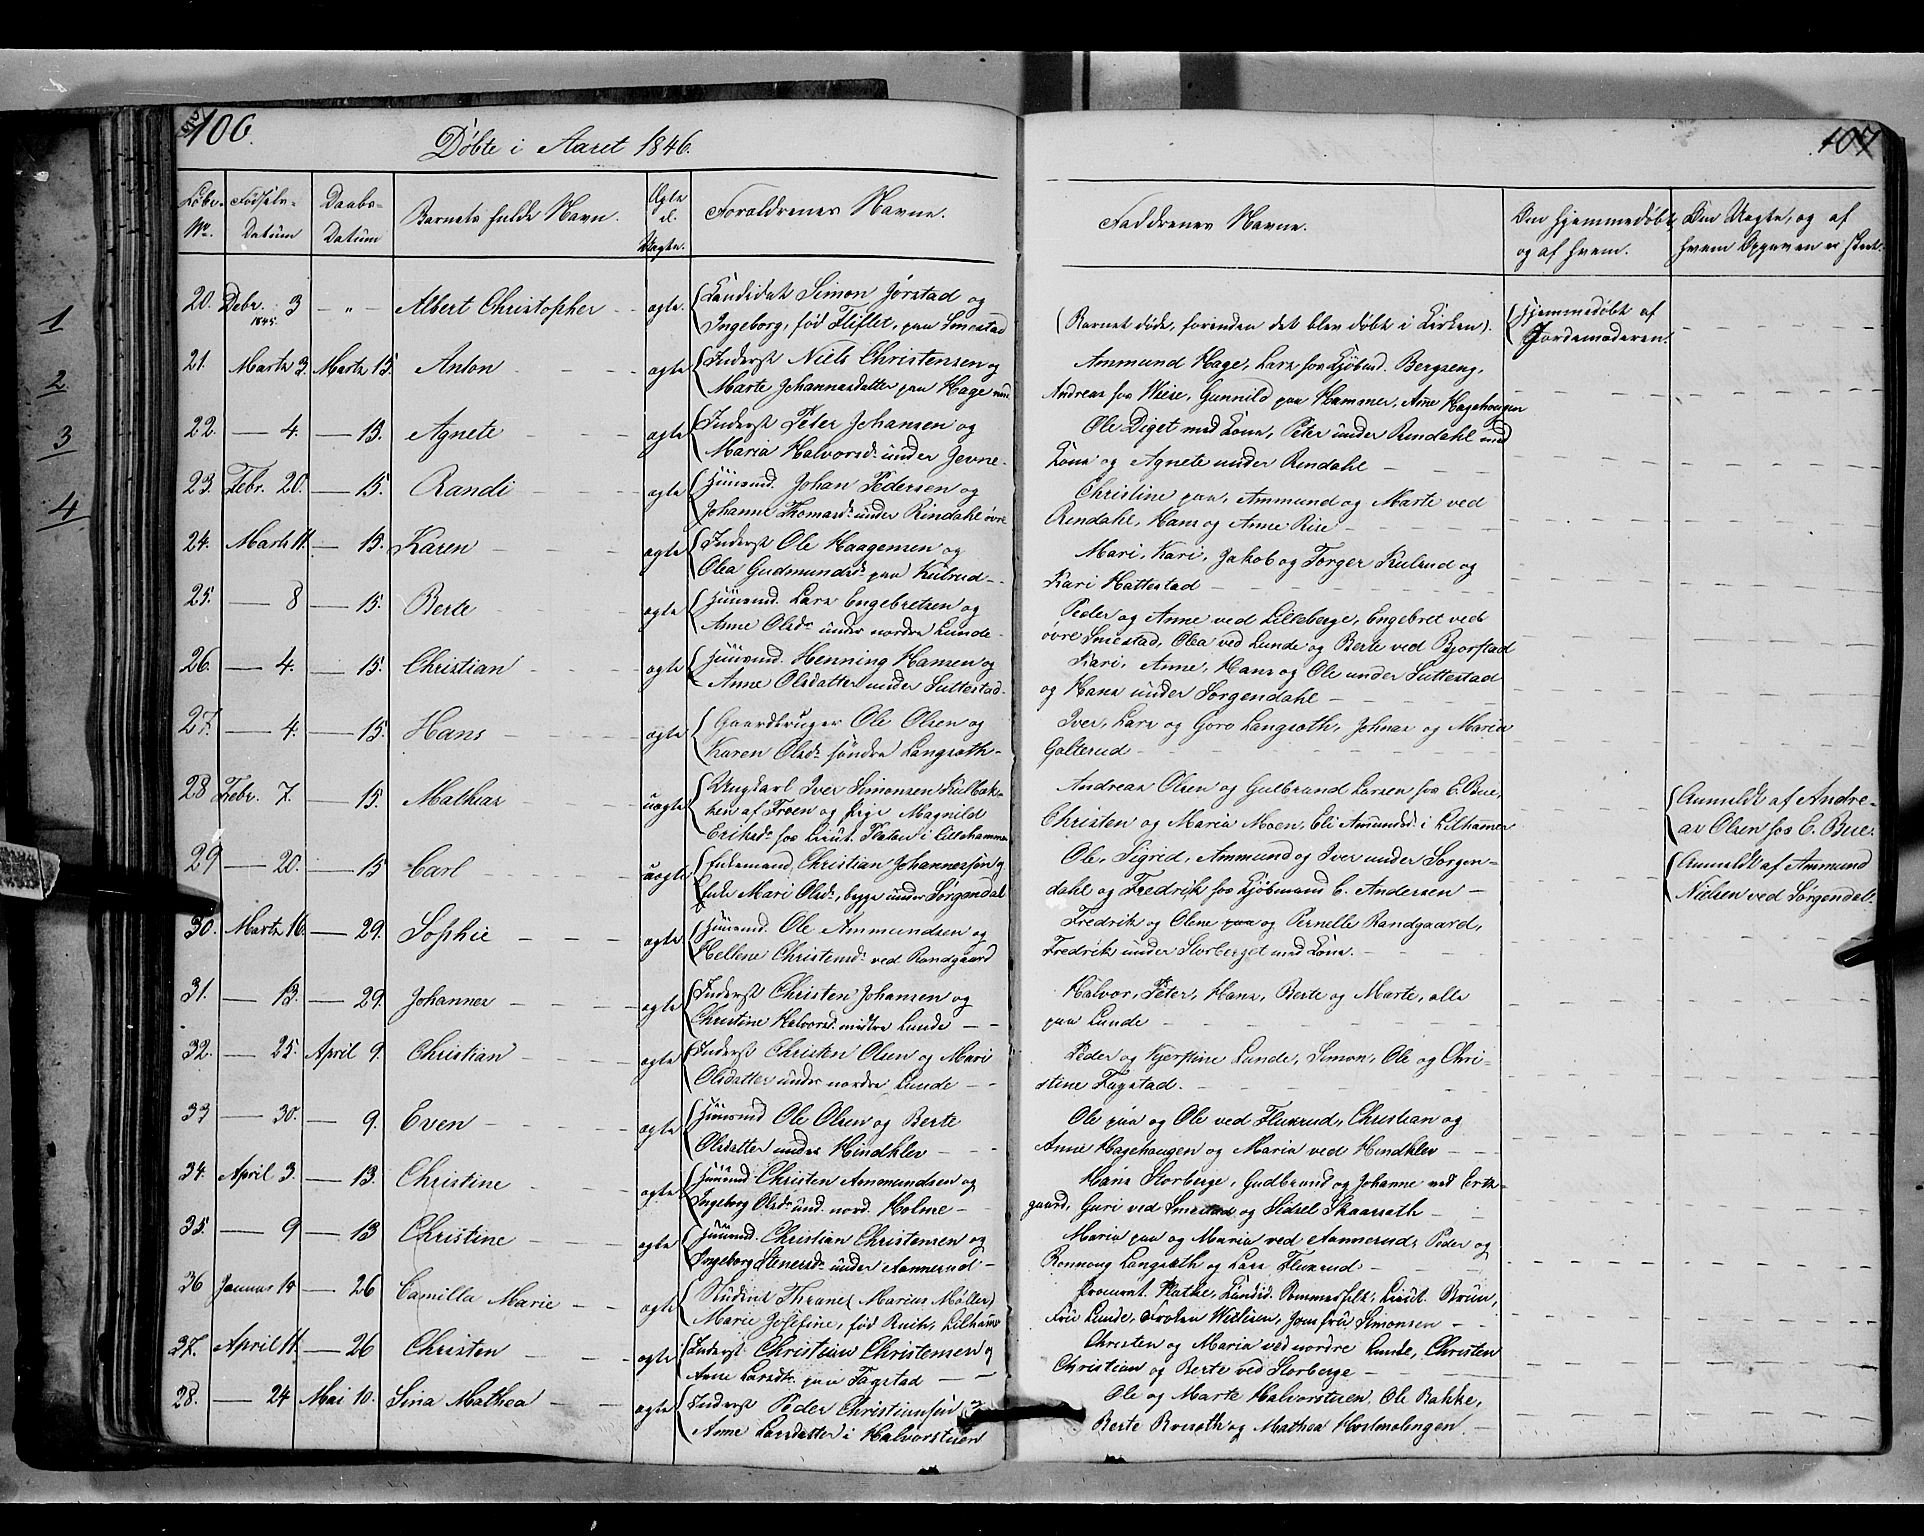 106.
Døbte i Aaret 1846.
107
Løbe- Fødsels- Daabs- Barnets fulde Navn. Ægte Forældrenes Navne. Faddrenes Navne. Om Hjemmedøbt Om Uægte, og af
No. Datum Datum el. Uægte. og af hvem. hvem Opgaven er skeet.
20. Debr. 1845. 3 - " - Albert Christopher ægte. Candidat Simon Jørstad og (Barnet døde, forinden det blev døbt i Kirken). Hjemmedøbt af
Ingeborg, fød Fliflet, paa Smestad Jordemoderen.
21. Marts 3. Marts 15. Anton ægte Inderst Niels Christensen og Ammund Hage, Lars hos Kjøbmd. Bergseng,
Marte Johannesdatter paa Hage Andreas hos Wiese, Gunnild paa Hammer, Anne Hagehougen
22. — 4. — 15. Agnete ægte Inderst Peter Johansen og Ole Diget med Kone, Peter under Rindahl med
Maria Halvorsd. under Jevne. Kone og Agnete under Rindahl
23. Febr. 20. — 15. Randi ægte Huusmd. Johan Pedersen og Christine paa, Ammund og Marte ved
Johanne Thomasd. under Rindahl øvre Rendahl, Hans og Anne Rise
24. Marts 11. — 15. Karen ægte Inderst Ole Haagensen og Mari, Kari, Jakob og Torger Kulrud og
Olea Gudmundsd. paa Kulrud Kari Hattestad
25. — 8 — 15. Berte ægte Huusmd. Lars Engebretsen og Peder og Anne ved Lilleberge, Engebret ved
Anne Olsdr. under nordre Lunde øvre Smestad, Olea ved Lunde og Berte ved Bjørstad
26. — 4. — 15. Christian ægte Huusmd. Henning Hansen og Kari, Anne, Hans og Ole under Suttestad
Anne Olsdatter under Suttestad og Hans under Sorgendahl
27. — 4. — 15. Hans ægte Gaardbruger Ole Olsen og Iver, Lars og Goro Langsæth, Johnas og Maria
Karen Olsd. søndre Langsæth Galterud
28 Febr. 7. — 15. Mathias uægte Ungkarl Iver Simonsen Kulbak- Andreas Olsen og Gulbrand Larsen hos E. Bue, Anmeldt af Andre-
ken af Froen og Pige Magnild Christen og Maria Moen, Eli Amundsd. i Lilhammer as Olsen hos E. Bue.
Eriksd. hos Lieut. Platou i Lillehammer
29 — 20. — 15 Carl uægte Enkemand Christian Johannessøn og Ole, Sigrid, Ammund og Iver under Sorgen- Anmeldt af Ammund
Enke Mari Olsd., begge under Sørgendal dahl og Fredrik hos Kjøbmand C. Andersen Nielsen ved Sørgendal.
30. Marts 16. — 29. Sophie ægte Huusmd. Ole Ammundsen og Fredrik og Olene paa og Pernelle Randgaard,
Hellene Christensd. ved Randgaard Fredrik under Storberget med Kone.
31. — 13. — 29. Johannes ægte Inderst Christen Johansen og Halvor, Peter, Hans, Berte og Marte, alle
Christine Halvorsd. midtre Lunde paa Lunde
32. — 25. April 9. Christian ægte Inderst Christen Olsen og Mari Peder og Kjerstine Lunde, Simon, Ole og Chri-
Olsdatter under nordre Lunde stine Fagstad.
33 — 30. — 9. Even ægte Huusmd Ole Olsen og Berte Ole paa og Ole ved Fluxrud, Christian og
Olsdatter under Hindklev Anne Hagehougen og Maria ved Hindklev
34. April 3. — 13. Christine ægte Huusmd Christen Ammundsen og Hans Storberge, Gudbrand og Johanne ved Erks-
Ingeborg Olsd. und. nord. Holme gaard, Guri ved Smestad og Sidsel Skaarsæth
35. — 9 — 13 Christine ægte Huusmd. Christian Christensen og Maria paa og Maria ved Aannerud, Peder og
Ingeborg Stenersd. under Aannerud Ronnoug Langsæth og Lars Fluxrud
36 Januar — 26 Camilla Marie ægte Student Thrane (Marius Møller) Procurat. Kandid. Sommerfelt, Lieut. Bruun,
Marie Josefine, fød Lilhamr Fru Lunde, Frøken Jomfru Simonsen
37. April 11. — 26 Christen ægte Inderst Christian Christensen og Christen og Maria ved nordre Lunde, Christen
Anne Larsdt. paa Fagstad Christian og Berte ved Storberge
28. — 24 Mai 10. Sina Mathea ægte Inderst Peder Christiansen og Ole og Marte Halvorstuen, Ole Bakke,
Anne Larsdatter i Halvorstuen Berte Rosæth og Mathea Hostmolingen.
1
2
3
4